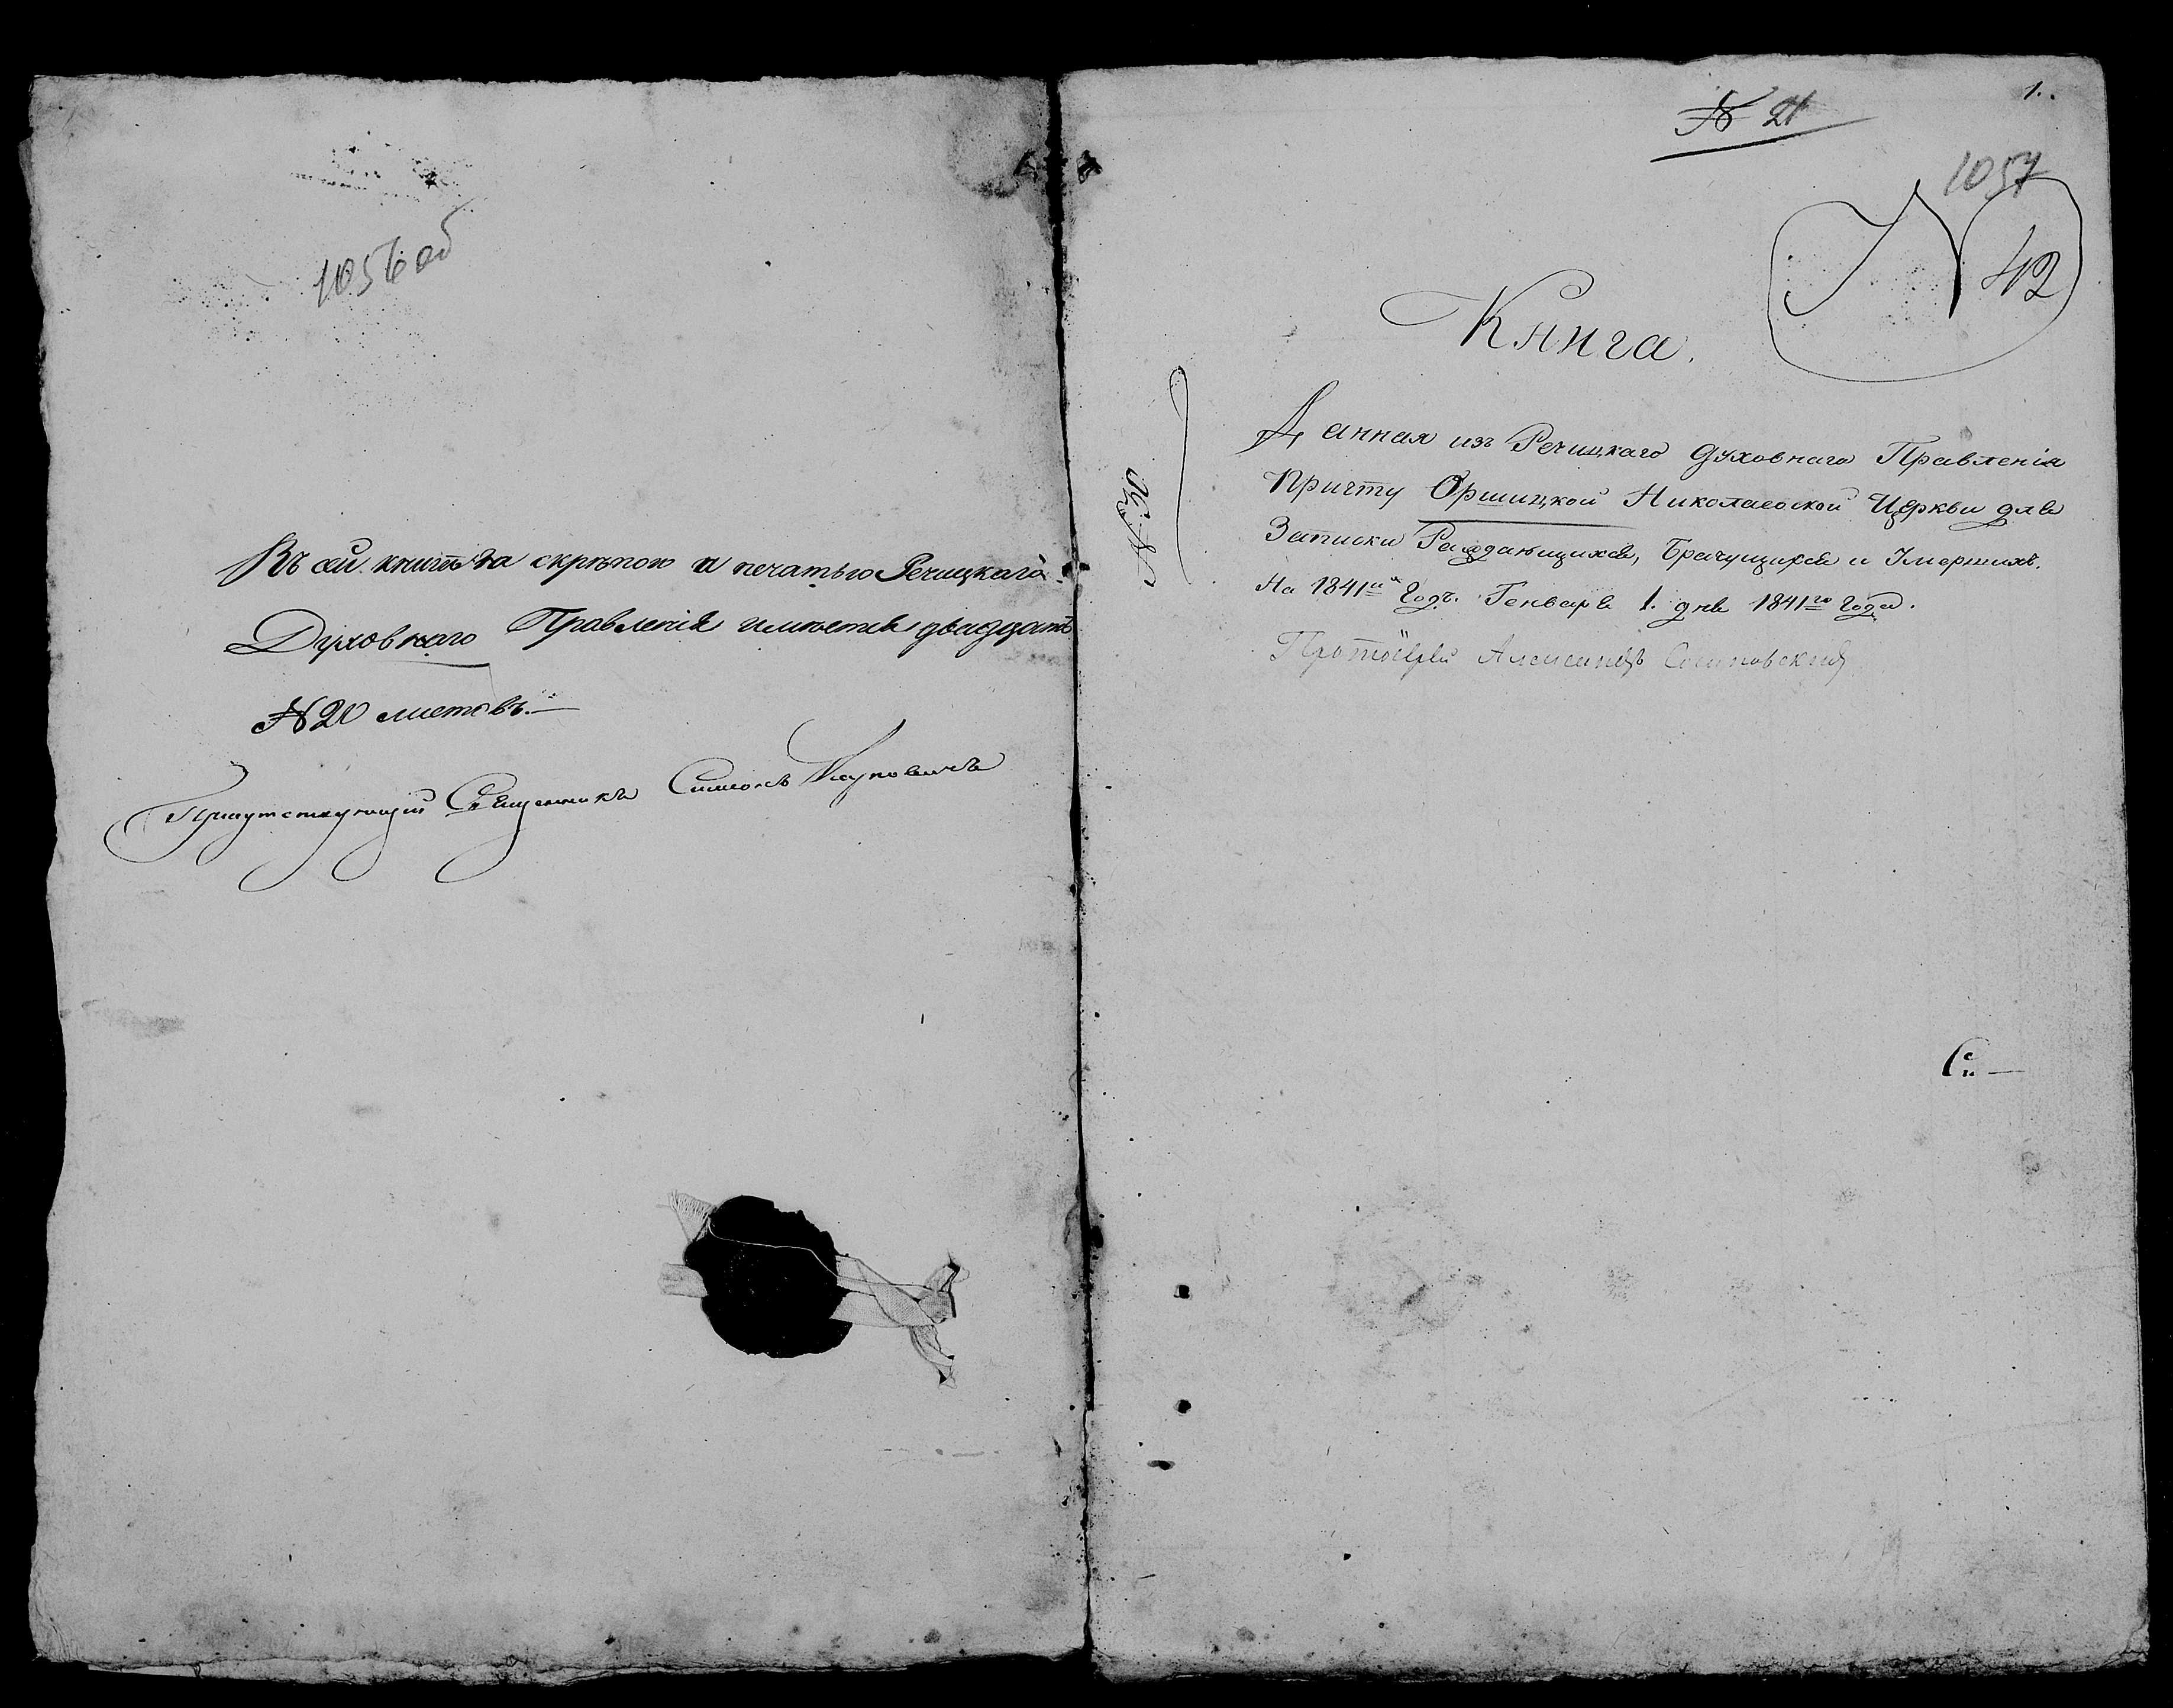 1056 об
Въ сей книге за скрѣпою и печатью Речицкаго
Духовнаго Правленія имѣется двадцать
№ 20 листовъ.
Присутствующій Священникъ Симеонъ
1.
№ 21
1057
№ 42
Книга.
Данная изъ Речицкаго Духовнаго Правленія
Причту Оршицкой Николаевской Церкви для
Записки Раждающихся, Брачущихся и Умершихъ.
На 1841й Годъ. Генваря 1. дня 1841го Года.
Протоіерей